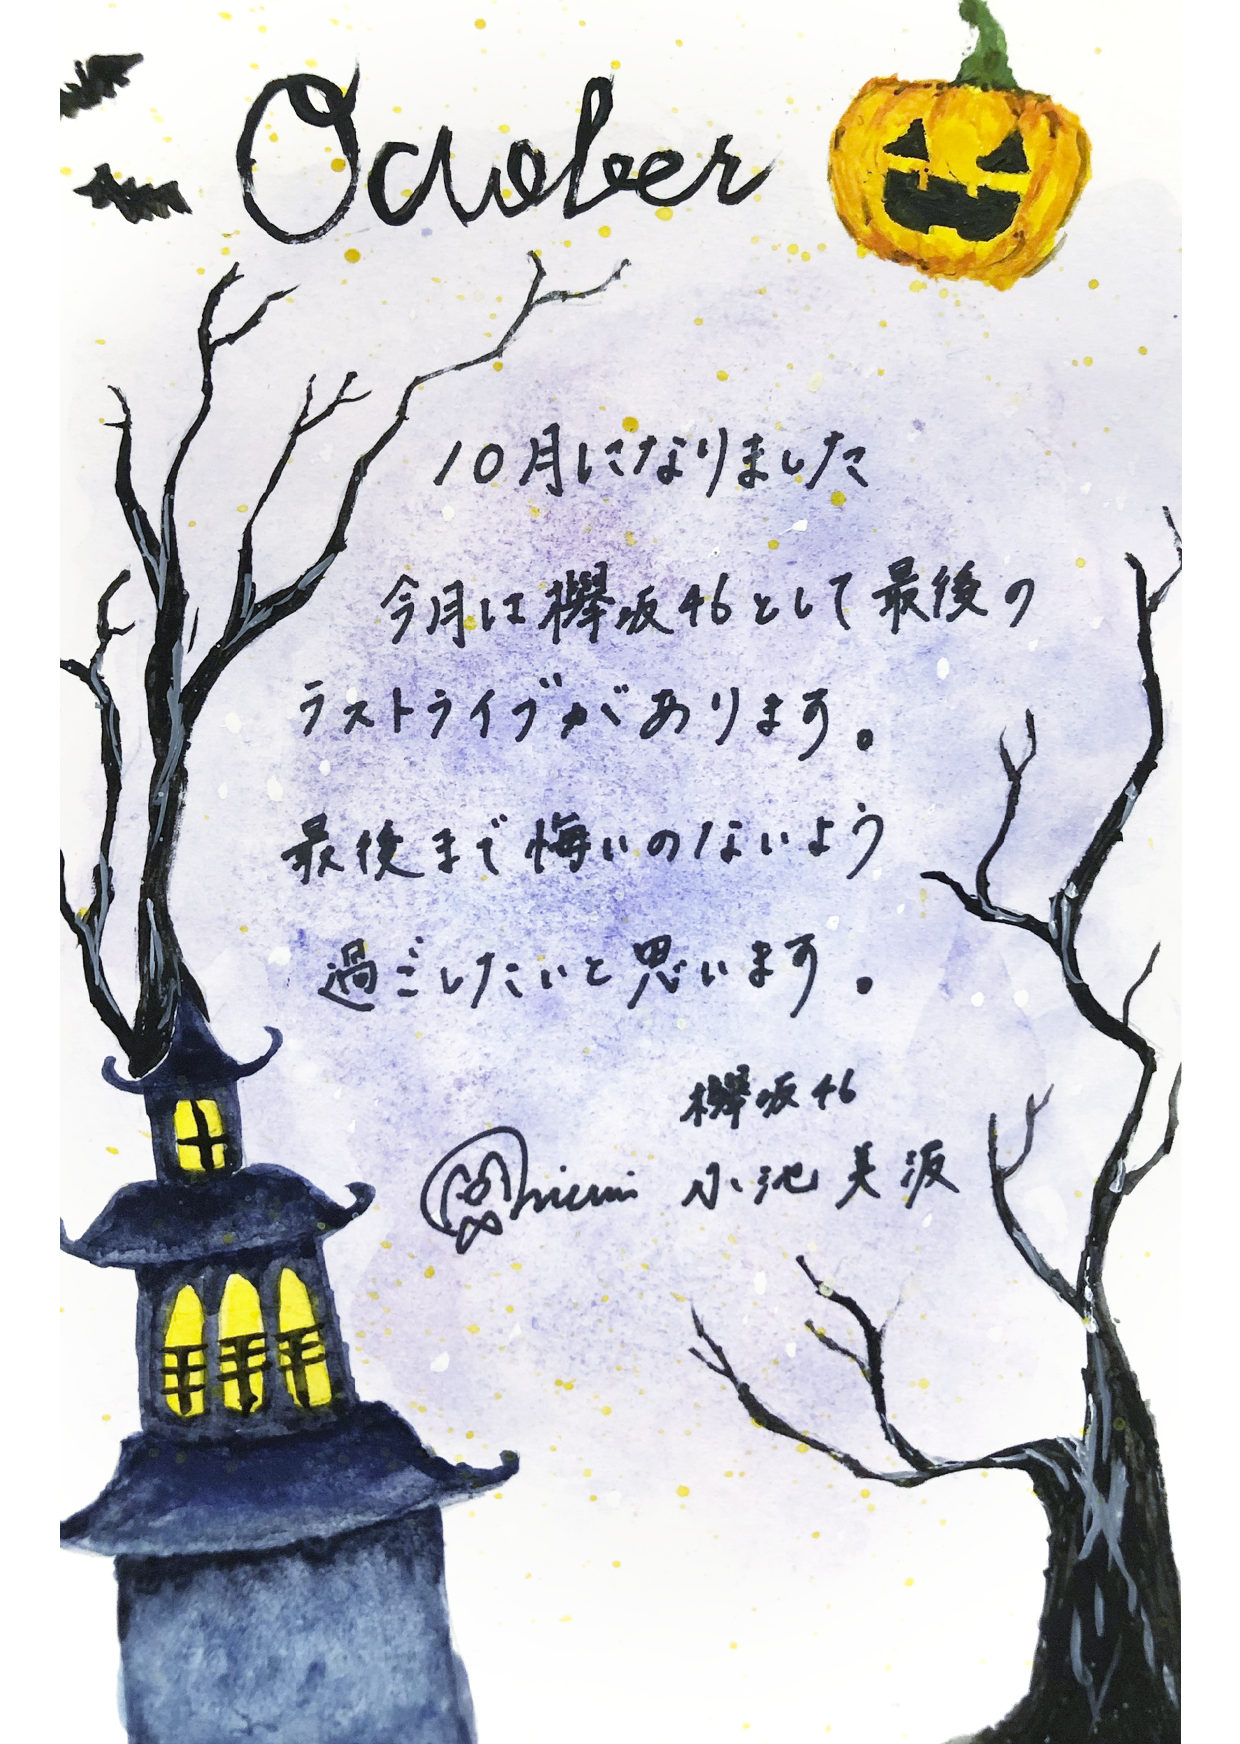 October
10月になりました
今月は欅坂46として最後の
ラストライブがあります。
最後まで悔いのないよう
過ごしたいと思います。
欅坂46
小池美波